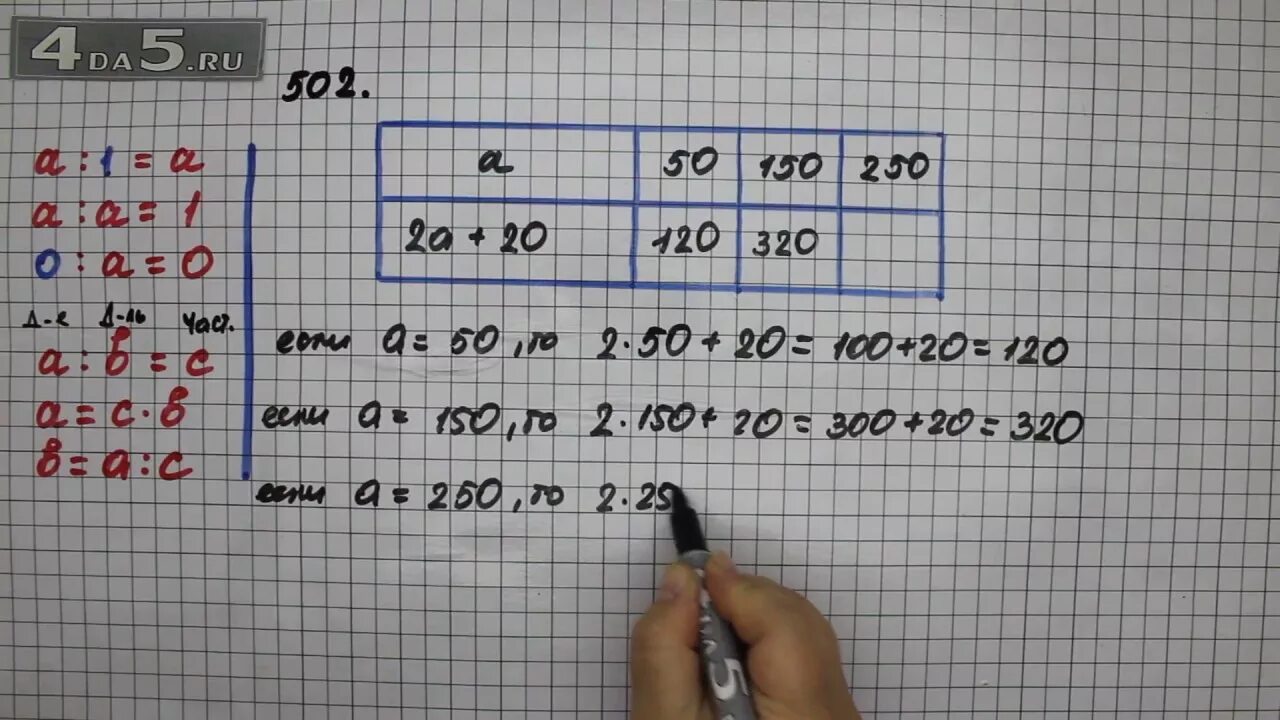 4DA5.RU
502.
a : 1 = a
a : a = 1
0 : a = 0
Д-е Д-ль Част.
a : в = c
a = c · в
в = a : c
a 50 150 250
2a + 20 120 320
если a = 50, то 2 · 50 + 20 = 100 + 20 = 120
если a = 150, то 2 · 150 + 20 = 300 + 20 = 320
если a = 250, то 2 · 25